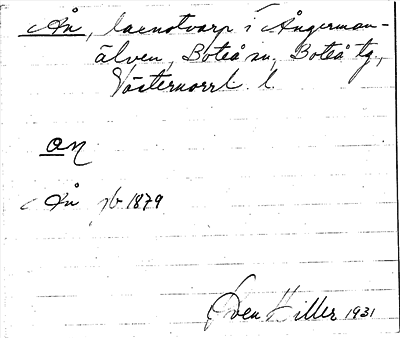 Ån, laxnotvarp i Ångerman-
älven, Boteå sn, Boteå tg,
Västernorrl. l.
ån
Ån jb 1879
Sven Hiller 1931